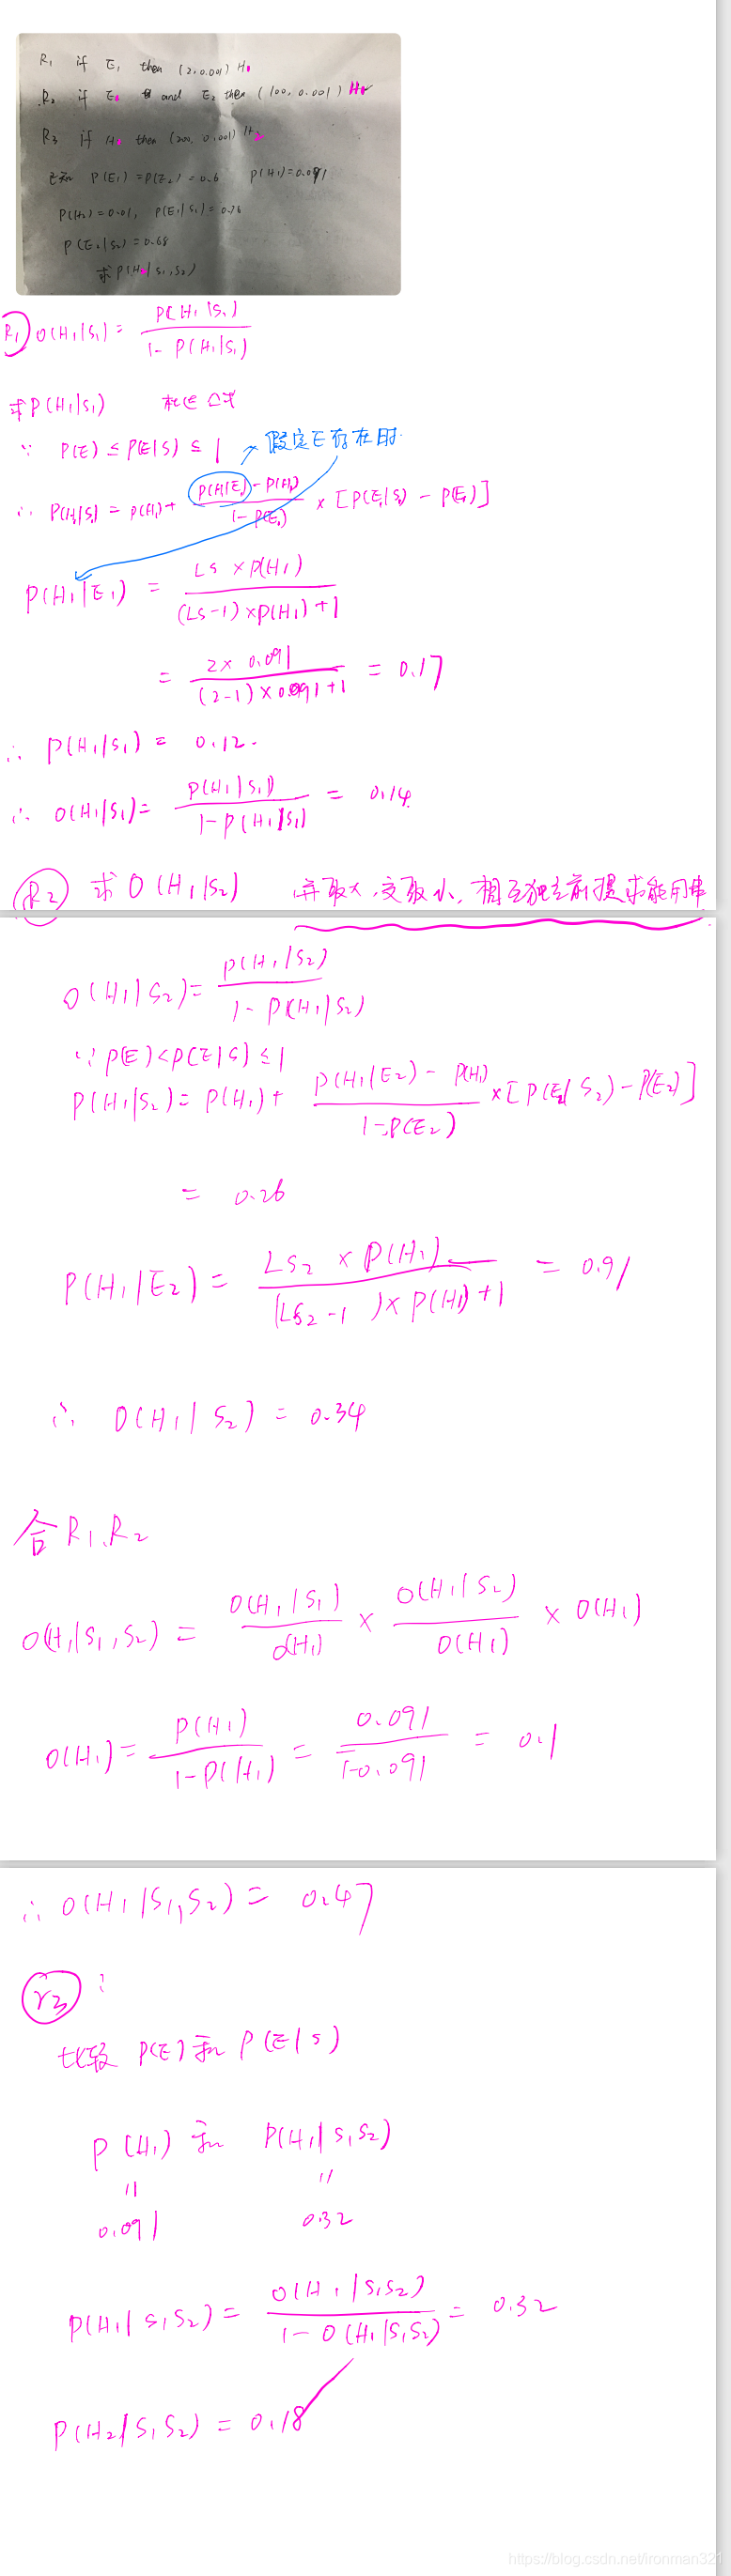 R₁ if E₁ then (2, 0.001) H₁
R₂ if E₁ and E₂ then (100, 0.001) H₁
R₃ if H₁ then (200, 0.001) H₂
已知 P(E₁)=P(E₂)=0.6 P(H₁)=0.091
P(H₂)=0.01, P(E₁|S₁)=0.76
P(E₂|S₂)=0.68
求P(H₂|S₁,S₂)
R₁ O(H₁|S₁)= P(H₁|S₁) / 1-P(H₁|S₁)
求P(H₁|S₁)
∵ P(E) ≤ P(E|S) ≤ 1 假定E存在时
∴ P(H₁|S₁) = P(H₁)+ P(H₁|E₁)-P(H₁) / 1-P(E₁) × [P(E₁|S₁) - P(E₁)]
P(H₁|E₁) = LS×P(H₁) / (LS-1)×P(H₁)+1
= 2×0.091 / (2-1)×0.091+1 = 0.17
∴ P(H₁|S₁) = 0.12.
∴ O(H₁|S₁)= P(H₁|S₁) / 1-P(H₁|S₁) = 0.14
R₂ 求 O(H₁|S₂) 并取大,交取小,相互独立前提求能用串
O(H₁|S₂)= P(H₁|S₂) / 1-P(H₁|S₂)
∵ P(E)<P(E|S)≤1
P(H₁|S₂)= P(H₁)+ P(H₁|E₂)-P(H₁) / 1-P(E₂) ×[P(E₂|S₂)-P(E₂)]
= 0.26
P(H₁|E₂)= LS₂×P(H₁) / (LS₂-1)×P(H₁)+1 = 0.91
∴ O(H₁|S₂) = 0.34
合R₁、R₂
O(H₁|S₁,S₂) = O(H₁|S₁) / O(H₁) × O(H₁|S₂) / O(H₁) × O(H₁)
O(H₁)= P(H₁) / 1-P(H₁) = 0.091 / 1-0.091 = 0.1
∴ O(H₁|S₁,S₂) = 0.47
r₃ :
比较 P(E)和 P(E|S)
P(H₁) 和 P(H₁|S₁S₂)
= =
0.091 0.32
P(H₁|S₁S₂)= O(H₁|S₁S₂) / 1-O(H₁|S₁S₂) = 0.32
P(H₂|S₁S₂)= 0.18
https://blog.csdn.net/ironman321